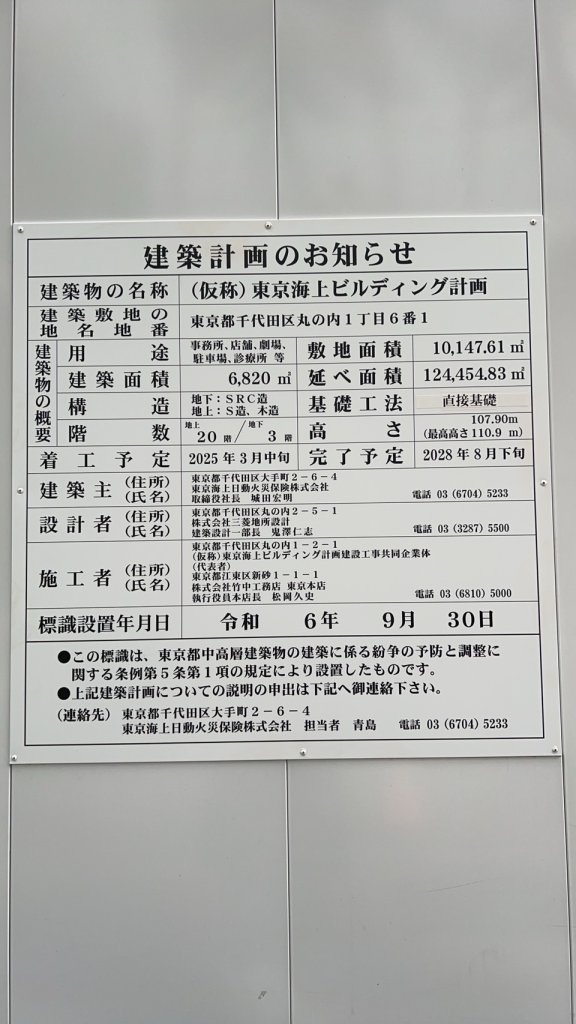 建築計画のお知らせ
建築物の名称 (仮称)東京海上ビルディング計画
建築敷地の地名地番 東京都千代田区丸の内1丁目6番1
建築物の概要
用途 事務所、店舗、劇場、駐車場、診療所 等 敷地面積 10,147.61㎡
建築面積 6,820㎡ 延べ面積 124,454.83㎡
構造 地下：SRC造 地上：S造、木造 基礎工法 直接基礎
階数 地上20階/地下3階 高さ 107.90m (最高高さ110.9 m)
着工予定 2025年3月中旬 完了予定 2028年8月下旬
建築主 (住所)(氏名)
東京都千代田区大手町2－6－4
東京海上日動火災保険株式会社
取締役社長 城田宏明 電話 03 (6704) 5233
設計者 (住所)(氏名)
東京都千代田区丸の内2－5－1
株式会社三菱地所設計
建築設計一部長 鬼澤仁志 電話 03 (3287) 5500
施工者 (住所)(氏名)
東京都千代田区丸の内1－2－1
(仮称)東京海上ビルディング計画建設工事共同企業体
(代表者)
東京都江東区新砂1－1－1
株式会社竹中工務店 東京本店
執行役員本店長 松岡久史 電話 03 (6810) 5000
標識設置年月日 令和 6年 9月 30日
●この標識は、東京都中高層建築物の建築に係る紛争の予防と調整に
関する条例第5条第1項の規定により設置したものです。
●上記建築計画についての説明の申出は下記へ御連絡下さい。
(連絡先) 東京都千代田区大手町2－6－4
東京海上日動火災保険株式会社 担当者 青島 電話 03 (6704) 5233